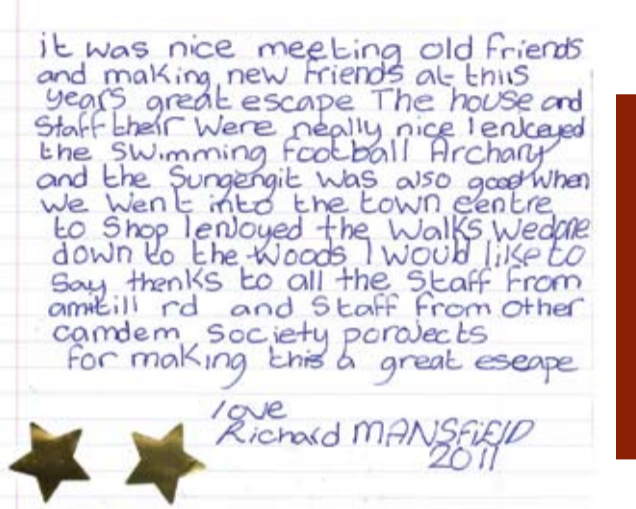 it was nice meeting old friends
and making new friends at this
years great escape The house and
Staff their were really nice I enkeyed
the swimming football Archary
and the Sungengit was also good when
we went into the town centre
to Shop I enjoyed the walks we done
down to the woods I would like to
Say thenks to all the Staff from
amitill rd and Staff from other
camdem society porojects
for making this a great eseape
love
Richard MANSFiElD
2011